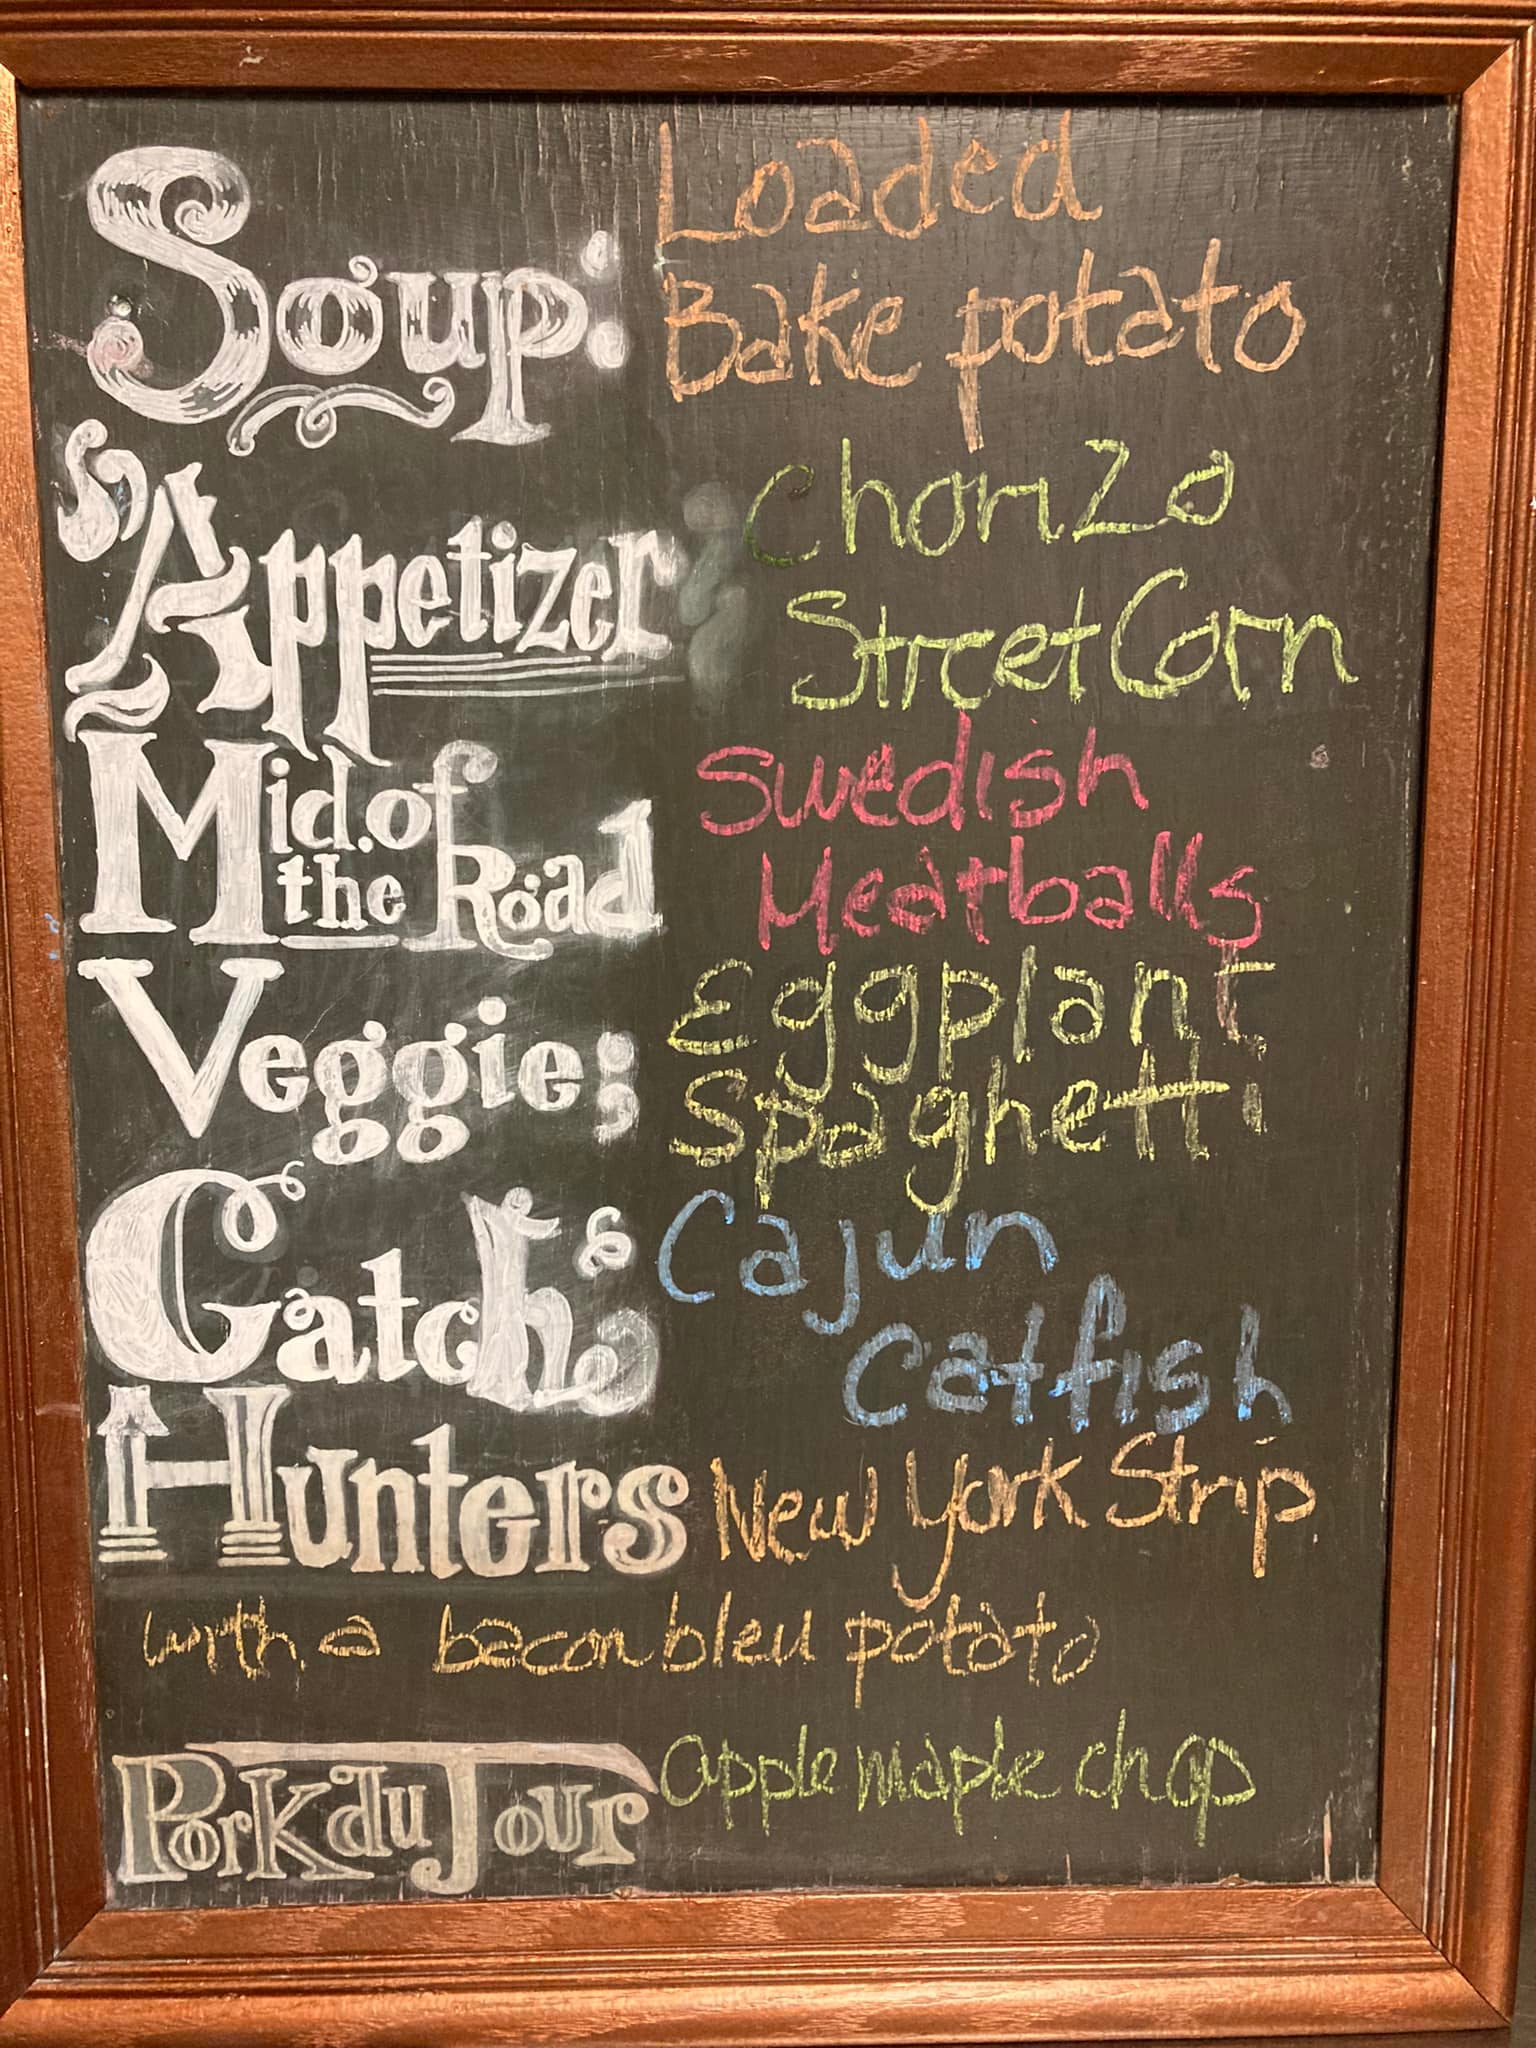 Soup: Loaded
Bake potato
Appetizer Chorizo
Street Corn
Mid. of the Road Swedish
Meatballs
Veggie: Eggplant
Spaghetti
Catch Cajun
Catfish
Hunters New York Strip
with a bacon bleu potato
Pork du Jour apple maple chop